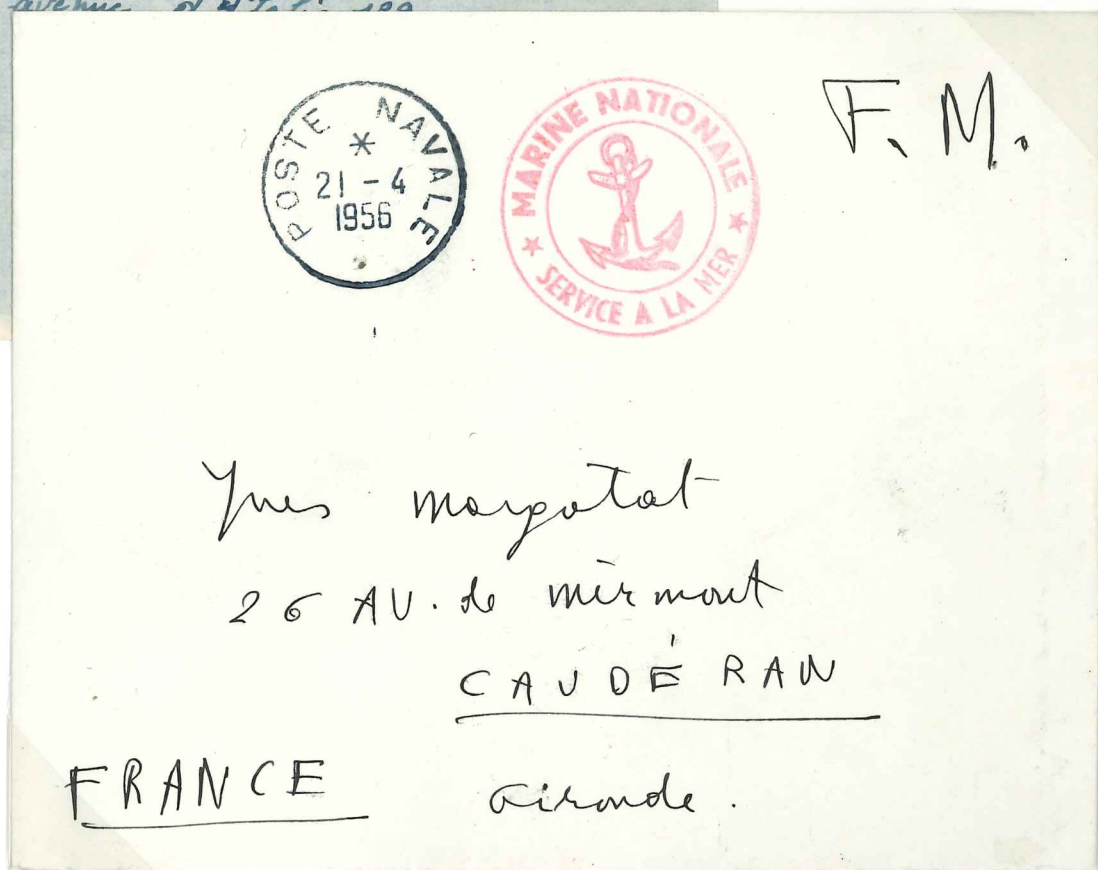 avenue
POSTE NAVALE
21-4
1956
MARINE NATIONALE
SERVICE A LA MER
F. M.
Yves Margotat
26 AV. de Mirmont
CAUDÉRAN
FRANCE
Gironde.